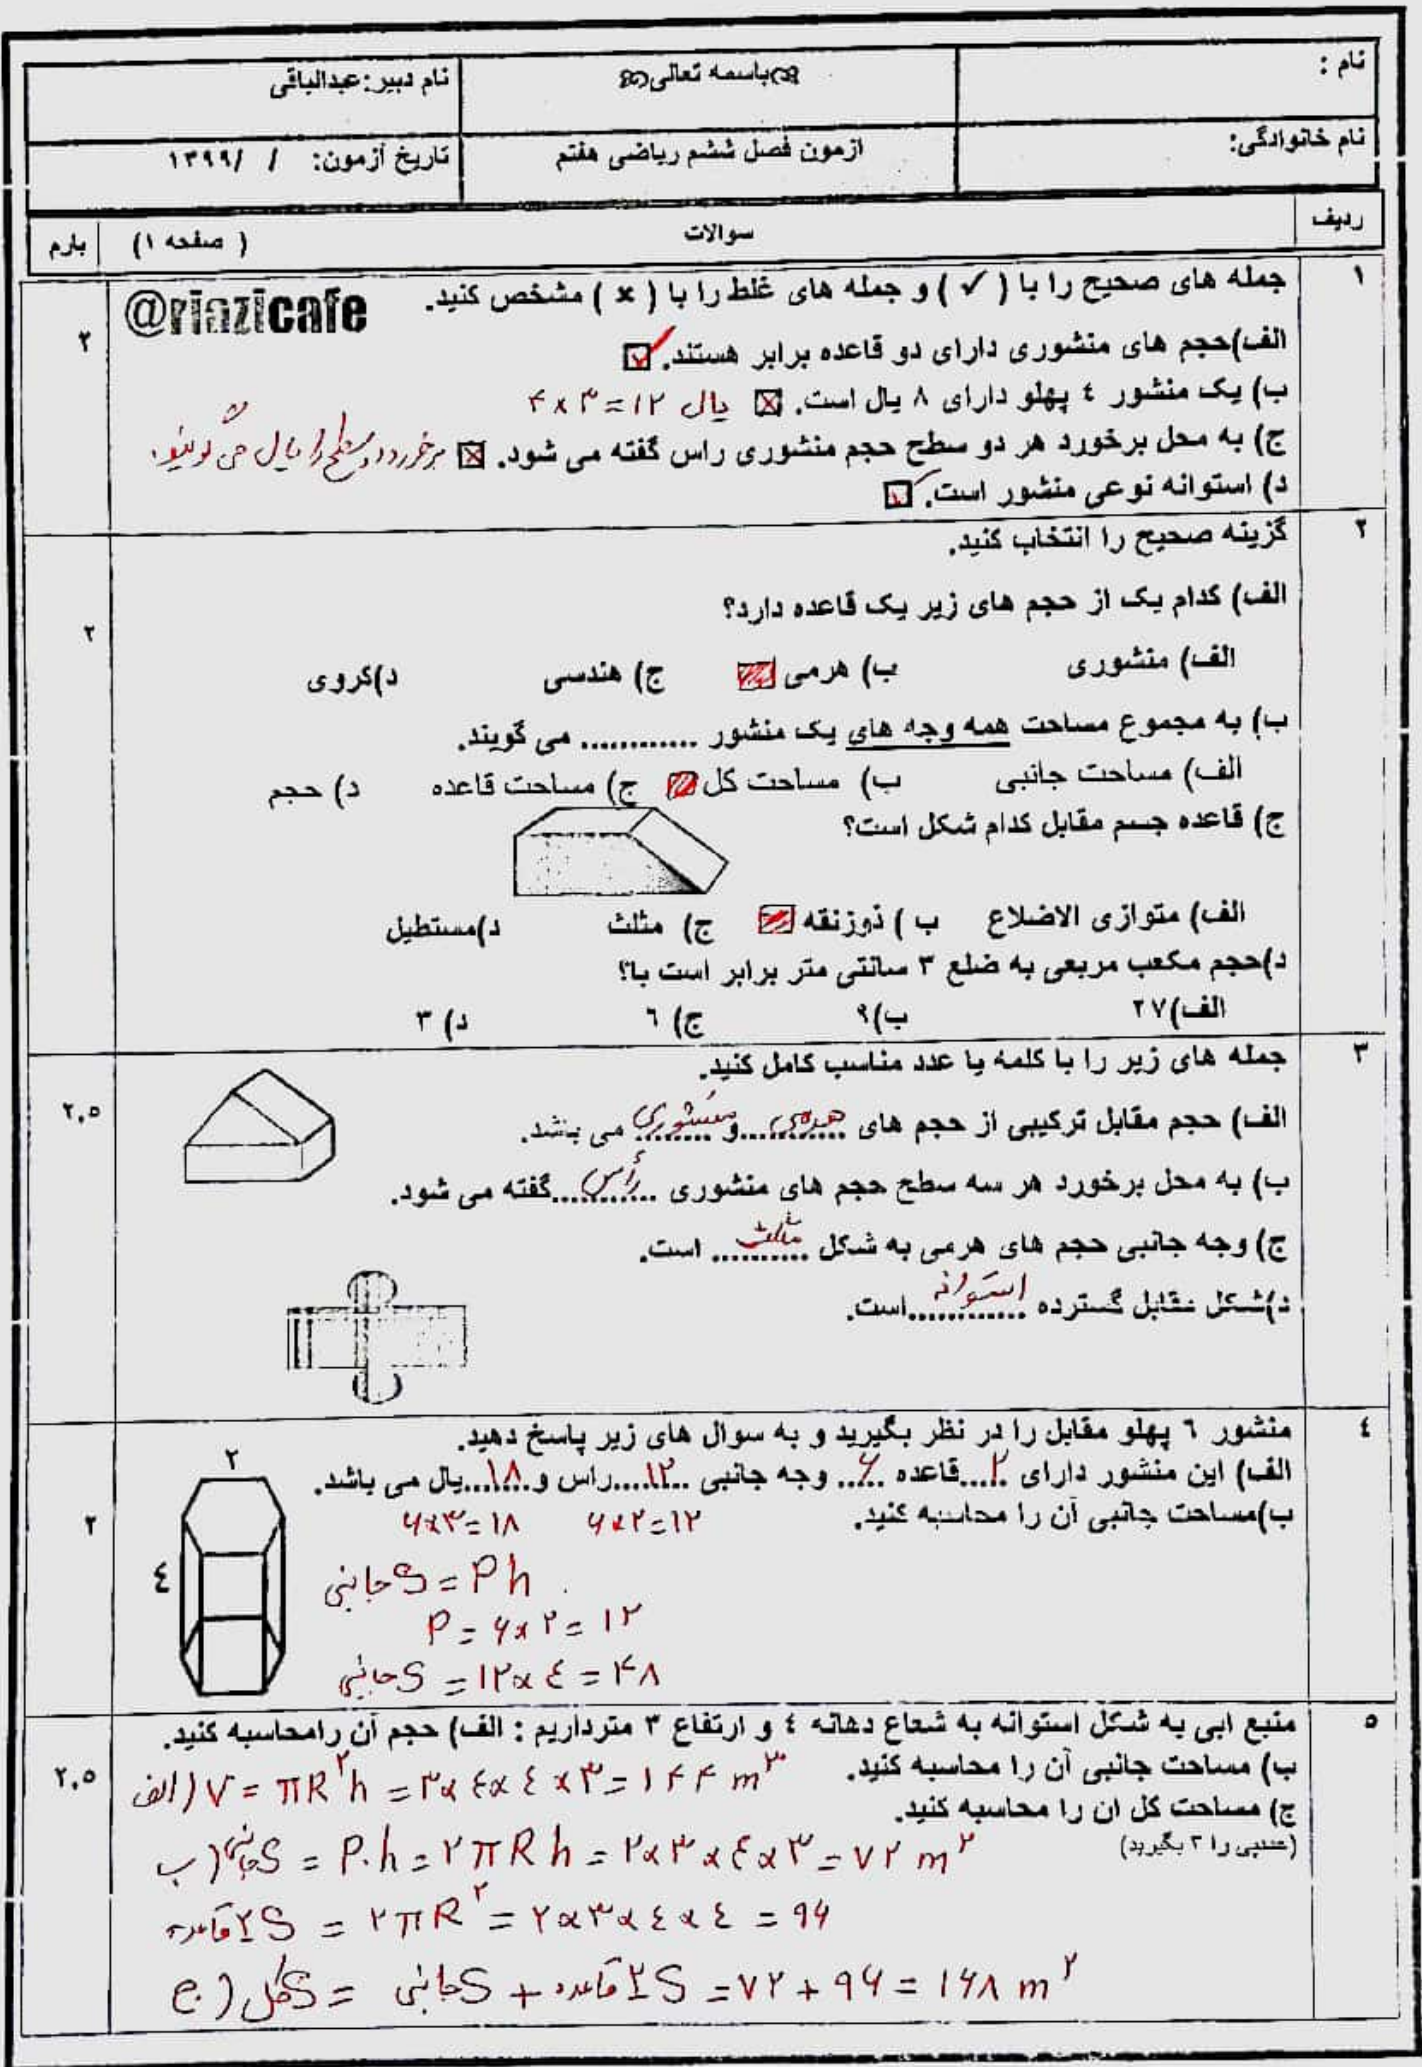 نام :
باسمه تعالی
نام دبیر:عبدالباقی
نام خانوادگی:
ازمون فصل ششم ریاضی هفتم
تاریخ آزمون: / /۱۳۹۹
ردیف
سوالات
( صفحه ۱)
بارم
۱
جمله های صحیح را با ( ✓ ) و جمله های غلط را با ( × ) مشخص کنید.
@riazicafe
۲
الف)حجم های منشوری دارای دو قاعده برابر هستند. ☑
ب) یک منشور ٤ پهلو دارای ۸ یال است. ☒ یال ۴×۳=۱۲
ج) به محل برخورد هر دو سطح حجم منشوری راس گفته می شود. ☒ برخورد دو سطح را یال می گوئیم.
د) استوانه نوعی منشور است. ☑
۲
گزینه صحیح را انتخاب کنید.
الف) کدام یک از حجم های زیر یک قاعده دارد؟
۲
الف) منشوری ب) هرمی ج) هندسی د)کروی
ب) به مجموع مساحت همه وجه های یک منشور ............ می گویند.
الف) مساحت جانبی ب) مساحت کل ج) مساحت قاعده د) حجم
ج) قاعده جسم مقابل کدام شکل است؟
الف) متوازی الاضلاع ب ) ذوزنقه ج) مثلث د)مستطیل
د)حجم مکعب مربعی به ضلع ۳ سانتی متر برابر است با؟
الف)۲۷ ب)۹ ج) ٦ د) ۳
۳
جمله های زیر را با کلمه یا عدد مناسب کامل کنید.
۲,٥
الف) حجم مقابل ترکیبی از حجم های هرمی و منشوری می باشد.
ب) به محل برخورد هر سه سطح حجم های منشوری رأس گفته می شود.
ج) وجه جانبی حجم های هرمی به شکل مثلث است.
د)شکل مقابل گسترده استوانه است.
٤
منشور ٦ پهلو مقابل را در نظر بگیرید و به سوال های زیر پاسخ دهید.
الف) این منشور دارای ۲ قاعده ۶ وجه جانبی ۱۲ راس و ۱۸ یال می باشد.
ب)مساحت جانبی آن را محاسبه کنید. ۶×۲=۱۲ ۶×۳=۱۸
۲
۲
٤
S جانبی = Ph
P = ۶×۲ = ۱۲
S جانبی = ۱۲×٤ = ۴۸
٥
منبع ابی به شکل استوانه به شعاع دهانه ٤ و ارتفاع ۳ مترداریم : الف) حجم آن رامحاسبه کنید.
ب) مساحت جانبی آن را محاسبه کنید.
۲,٥
الف) V = πR²h = ۳×٤×٤×۳ = ۱۴۴ m³
ج) مساحت کل ان را محاسبه کنید.
(عدد پی را ۳ بگیرید)
ب) S جانبی = P.h = ۲πRh = ۲×۳×٤×۳ = ۷۲ m²
۲S قاعده = ۲πR² = ۲×۳×٤×٤ = ۹۶
ج) S کل = S جانبی + ۲S قاعده = ۷۲ + ۹۶ = ۱۶۸ m²